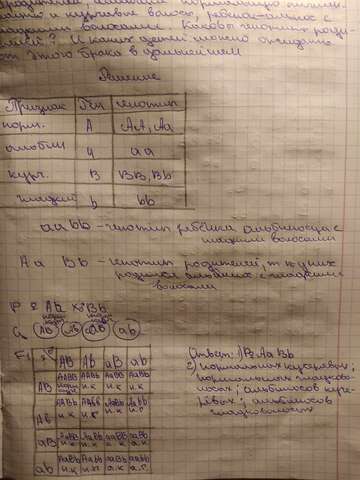 родителей,
и курчавые волосы, ребёнок-альбинос с
гладкими волосами. Каковы генотипы роди-
телей? И каких детей можно ожидать
от этого брака в дальнейшем
Решение
Признак Ген генотип
норм. A AA, Aa
альбин a aa
курч. B BB, Bb
гладкий b bb
aabb - генотип ребёнка альбиноса с
гладкими волосами
Aa Bb - генотип родителей, т.к у них
родился альбинос с гладкими
волосами
P ♀ Aa x ♂ Bb
G AB Ab aB ab
F1 ♀ ♂ AB Ab aB ab
AB AABB AABb AaBB AaBb
н.к н.к н.к н.к
Ab AABb AAbb AaBb Aabb
aB AaBB AaBb aaBB aaBb
н.к н.к а.к а.к
ab AaBb Aabb aaBb aabb
Ответ: 1) P: AaBb
2) нормальных курчавых;
нормальных гладково-
лосых; альбиносов курча-
вых; альбиносов
гладковолосых